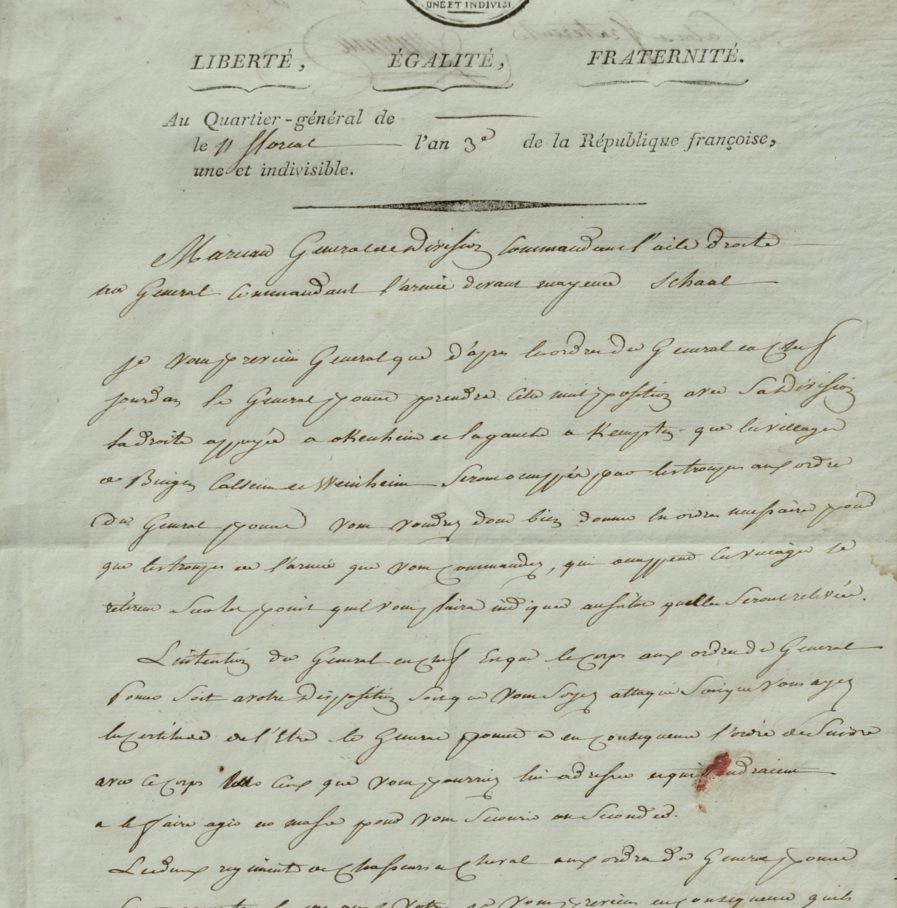 UNE ET INDIVISI
LIBERTÉ, ÉGALITÉ, FRATERNITÉ.
Au Quartier-général de
le 11 floreal l'an 3e de la République françoise,
une et indivisible.
General de Division Commandant l'aile droite
au General Commandant l'armée devant mayence Schaal
je vous previens General que d'apres les ordres du General en chef
jourdan le General poncet prendra cete nuit position avec sa division
la droite appuyée a okenheim et la gauche a Kempten que les villages
de Bingen et Weinheim seront occuppés par les troupes aux ordre
du General poncet vous voudrez donc bien donner les ordres necessaire pour
que les troupes de l'armée que vous commandez, qui occuppent ces villages se
retirent sur les point que vous faire indiquer aussitot quelles seront relevées.
L'intention du General en chef est que le corps aux ordres du General
Poncet soit a votre disposition lorsque vous soyez attaque vous ayez
la certitude de l'être le General poncet a en consequence l'ordre de suivre
avec ce corps ceux que vous pourriez lui adresser et qui tendraient
a le faire agir en masse pour vous secourir ou seconder.
Les deux regiment de chasseurs a cheval aux ordres du General poncet
je vous previens en consequence quils